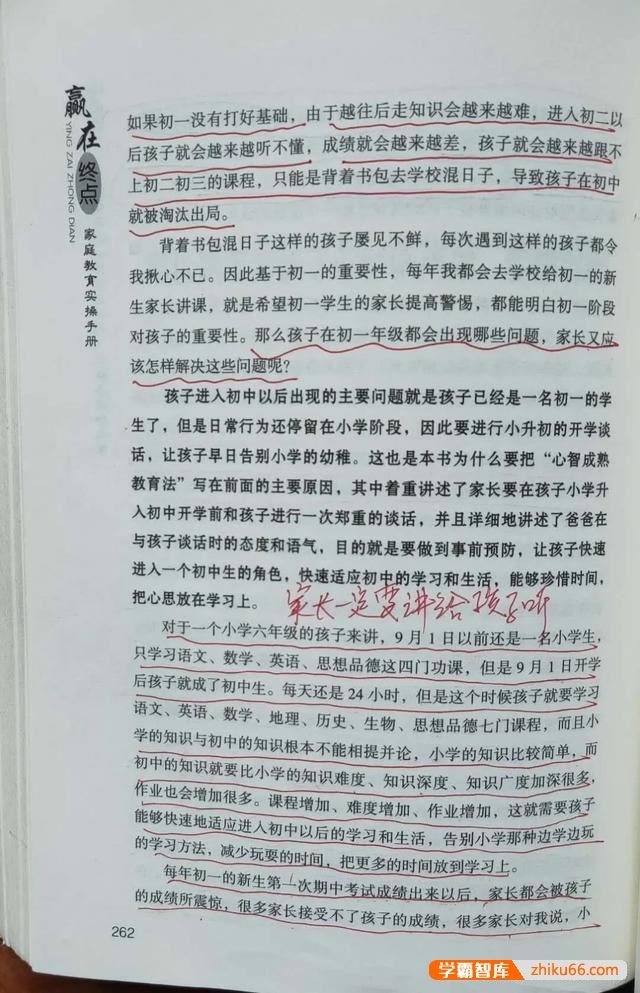 赢在终点
YING ZAI ZHONG DIAN
家庭教育实操手册
如果初一没有打好基础，由于越往后走知识会越来越难，进入初二以
后孩子就会越来越听不懂，成绩就会越来越差，孩子就会越来越跟不
上初二初三的课程，只能是背着书包去学校混日子，导致孩子在初中
就被淘汰出局。
背着书包混日子这样的孩子屡见不鲜，每次遇到这样的孩子都令
我揪心不已。因此基于初一的重要性，每年我都会去学校给初一的新
生家长讲课，就是希望初一学生的家长提高警惕，都能明白初一阶段
对孩子的重要性。那么孩子在初一年级都会出现哪些问题，家长又应
该怎样解决这些问题呢？
孩子进入初中以后出现的主要问题就是孩子已经是一名初一的学
生了，但是日常行为还停留在小学阶段，因此要进行小升初的开学谈
话，让孩子早日告别小学的幼稚。这也是本书为什么要把“心智成熟
教育法”写在前面的主要原因，其中着重讲述了家长要在孩子小学升
入初中开学前和孩子进行一次郑重的谈话，并且详细地讲述了爸爸在
与孩子谈话时的态度和语气，目的就是要做到事前预防，让孩子快速
进入一个初中生的角色，快速适应初中的学习和生活，能够珍惜时间，
把心思放在学习上。 家长一定要讲给孩子听
对于一个小学六年级的孩子来讲，9月1日以前还是一名小学生，
只学习语文、数学、英语、思想品德这四门功课，但是9月1日开学
后孩子就成了初中生。每天还是24小时，但是这个时候孩子就要学习
语文、英语、数学、地理、历史、生物、思想品德七门课程，而且小
学的知识与初中的知识根本不能相提并论，小学的知识比较简单，而
初中的知识就要比小学的知识难度、知识深度、知识广度加深很多，
作业也会增加很多。课程增加、难度增加、作业增加，这就需要孩子
能够快速地适应进入初中以后的学习和生活，告别小学那种边学边玩
的学习方法，减少玩耍的时间，把更多的时间放到学习上。
每年初一的新生第一次期中考试成绩出来以后，家长都会被孩子
的成绩所震惊，很多家长接受不了孩子的成绩，很多家长对我说，小
262
学霸智库 zhiku66.com